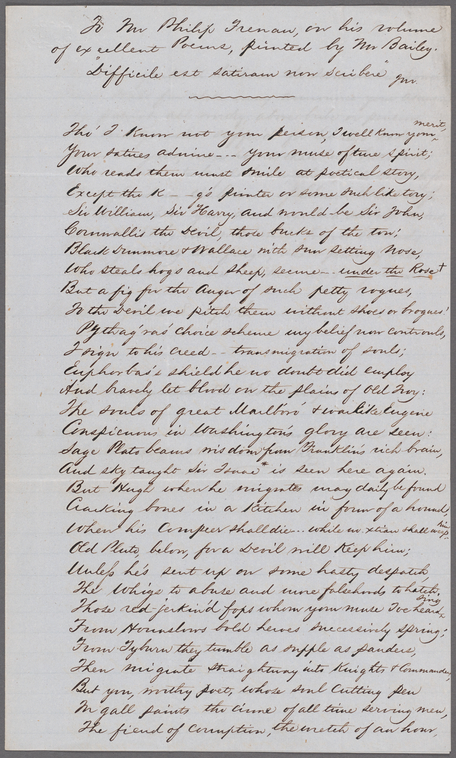 To Mr Philip Freneau, on his volume
of excellent Poems, printed by Mr Bailey.
"Difficile est satiram non scribere" Juv.
Tho' I Know not your person, I well know your merit,
Your satires admire -- your muse of true Spirit;
Who reads them must smile at poetical story,
Except the K--g's printer or some such like tory;
Sir William, Sir Harry, and would-be Sir John,
Cornwallis the Devil, those bucks of the ton;
Black Dunmore & Wallace with sun setting Nose,
Who steals hogs and sheep, secure -- under the Rose †
But a fig for the Anger of such petty rogues,
To the Devil we pitch them without shoes or brogues!
Pythag'ras' choice scheme my belief now controuls,
I sign to his creed -- transmigration of souls;
Euphorbas's shield he no doubt did employ
And bravely let blood on the plains of Old Troy:
The souls of great Marlboro' & warlike Eugene
Conspicuous in Washington's glory are seen:
Sage Plato beams wisdom from Franklin's rich brain,
And sky taught Sir Isaac * is seen here again.
But Hugh when he migrates may daily be found
Cracking bones in a Kitchen in form of a hound,
When his Compeer shall die -- while no xtian shall weep him
Old Pluto, below, for a Devil will Keep him;
Unless he's sent up on some hasty despatch,
The Whigs to abuse and more falsehoods to hatch.
Those red-jerkin'd fops whom your muse I've heard sing
From Hounslow's bold heroes successively spring:
From Tyburn they tumble as supple as panders,
Then migrate straightway into Knights & Commanders,
But you, worthy poet, whose soul cutting pen
In gall paints the crime of all time serving men,
The fiend of corruption, the wretch of an hour,